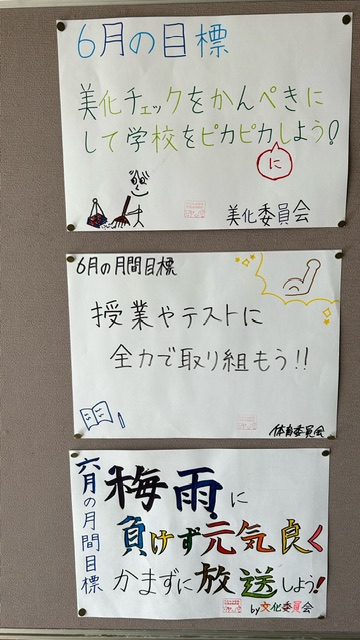 6月の目標
美化チェックをかんぺきに
して学校をピカピカしよう!
に
美化委員会
6月の月間目標
授業やテストに
全力で取り組もう!!
体育委員会
六月の月間目標
梅雨に
負けず元気良く
かまずに放送しよう!
by文化委員会